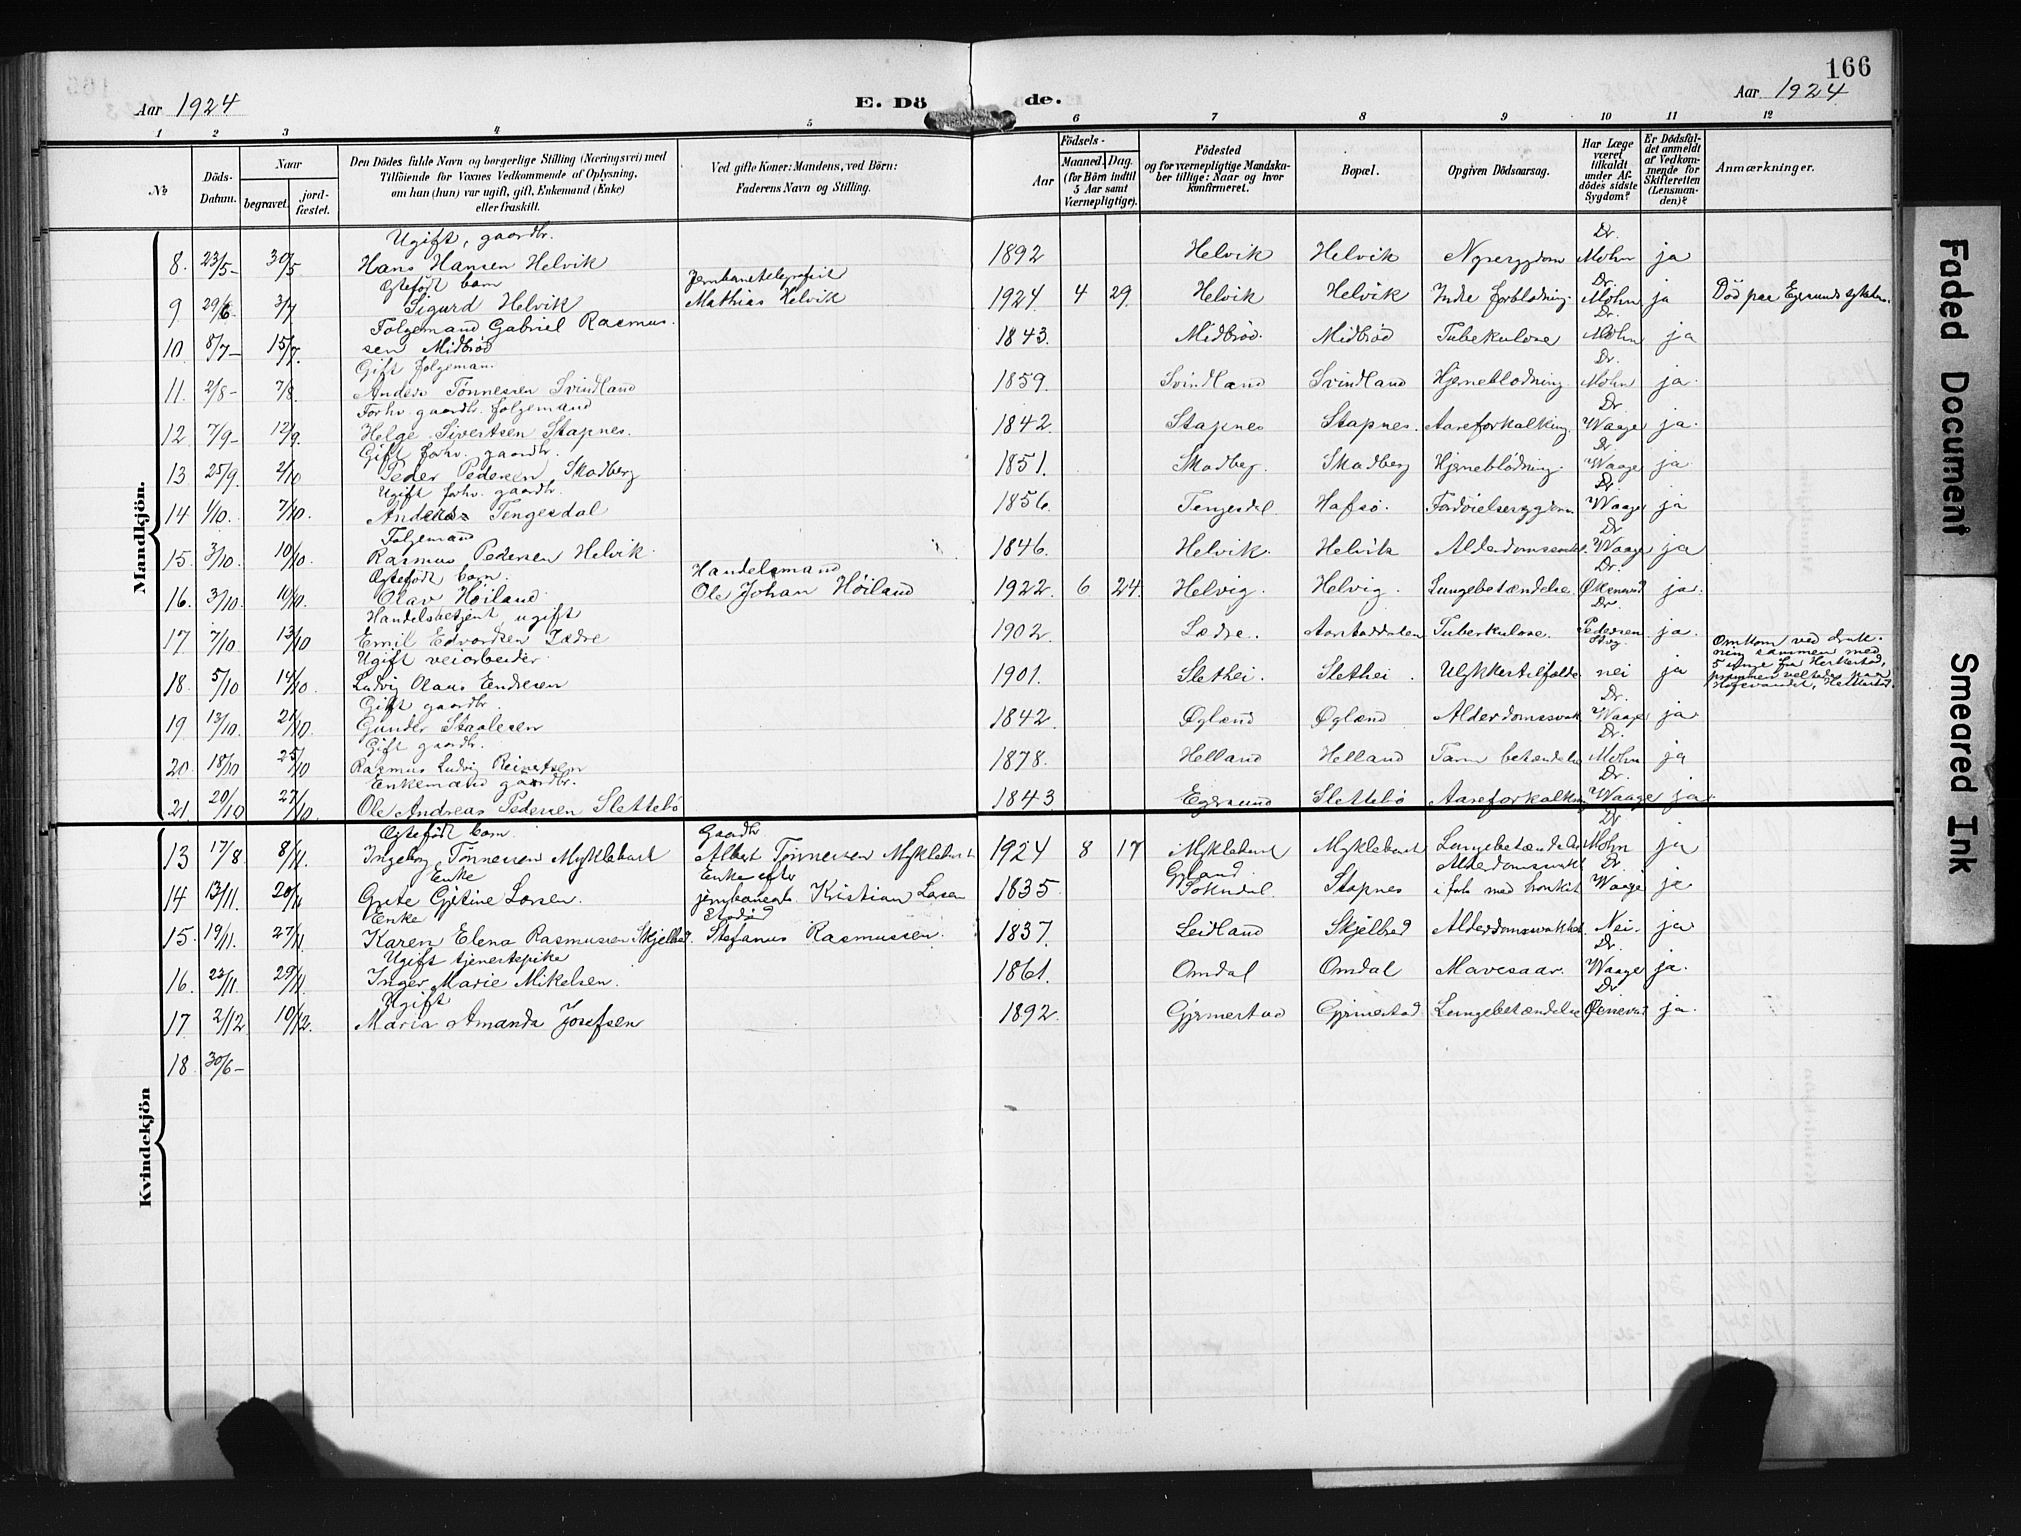 166
Aar 1924
E. Dö de.
Aar 1924
1 2 3 4 5 6 7 8 9 10 11 12
№
Döds-Datum.
Naar
begravet.
jord-fæstet.
Den Dödes fulde Navn og borgerlige Stilling (Næringsvei) med
Tilföiende for Voxnes Vedkommende af Oplysning,
om han (hun) var ugift, gift, Enkemand (Enke)
eller fraskilt.
Ved gifte Koner: Mandens, ved Börn:
Faderens Navn og Stilling.
Födsels-
Aar
Maaned. Dag.
(for Börn indtil
5 Aar samt
Værnepligtige).
Födested
og for værnepligtige Mandska-
ber tillige: Naar og hvor
konfirmeret.
Bopæl.
Opgiven Dödsaarsag.
Har Læge
været
tilkaldt
under Af-
dödes sidste
Sygdom?
Er Dödsfal-
det anmeldt
af Vedkom-
mende for
Skifteretten
(Lensman-
den)?
Anmærkninger.
Mandkjön.
Ugift, gaardbr. Dr.
8. 23/5- 30/5 Hans Hansen Helvik 1892 Helvik Helvik Nyresygdom Mohn ja
Ægtefødt barn Jernbanetelegrafist Dr.
9 29/6. 3/7 Sigurd Helvik Mathias Helvik 1924. 4 29. Helvik Helvik Indre forblødning. Mohn ja Død paa Egersunds sykehus.
Følgemand Gabriel Rasmus- Dr.
10. 8/7- 15/7. sen Midbrød 1843. Midbrød. Midbrød Tuberkulose Mohn ja
Gift følgeman. Dr.
11. 2/8- 7/8. Anders Tønnessen Svindland 1859. Svindland Svindland Hjerneblødning. Mohn ja.
Forhv. gaardbr. følgemand Dr.
12. 7/9- 12/9. Helge Sivertsen Stapnes. 1842. Stapnes Stapnes. Aareforkalkning. Waage ja.
Gift forhv. gaardbr. Dr.
13 25/9. 2/10 Peder Pedersen Skadberg 1851. Skadberg. Skadberg Hjerneblødning. Waage ja.
Ugift forhv. gaardbr. Dr.
14 1/10. 7/10. Andreas Tengesdal 1856. Tengesdal Hafsø. Fordøielsessygdom Waage ja
Følgemand Dr.
15. 3/10. 10/10. Rasmus Pedersen Helvik. 1846. Helvik. Helvik Alderdomssvakh. Waage ja
Ægtefødt barn. Handelsmand Dr.
16. 3/10. 10/10. Olav Høiland Ole Johan Høiland 1922. 6 24. Helvig. Helvig. Lungebetændelse Økenevad ja.
Handelsbetjent, ugift Dr.
17 7/10 13/10 Emil Edvardsen Lædre 1902. Lædre. Aarstaddalen Tuberkulose. Pedersen ja.
Ugift veiarbeider. Omkom ved druk-
ning sammen med
5 unge fra Hetlestad,
prammen veltede paa
18. 5/10 14/10. Ludvig Olaus Endresen 1901. Slethei. Slethei. Ulykkestilfælde nei ja
Gift gaardbr. Dr.
19. 13/10. 21/10. Gunder Staalesen 1842. Øglænd Øglænd. Alderdomssvak Waage ja
Gift gaardbr. Dr.
20. 18/10 25/10 Rasmus Ludvig Reinertsen 1878. Helland Helland Tarm betændelse Mohn ja
Enkemand gaardbr. Dr.
21 20/10 27/10. Ole Andreas Pedersen Slettebø 1843 Egersund Slettebø Aareforkalkning Waage ja.
Kvindekjön
Ægtefødt barn. Gaardbr Dr
13 17/8. 8/11. Ingeborg Tønnessen Myklebust Albert Tønnessen Myklebust 1924 8 17 Myklebust Myklebust Lungebetændelse Mohn ja
Enke Enke efter Gyland Alderdomssvakh Dr
14 13/11. 20/11 Grete Gjetine Larsen. jernbanearb. Kristian Larsen 1835. Sokndal. Stapnes i forb med bronkit Waage ja
Enke
15. 19/11. 27/11 Karen Elena Rasmussen Skjelbred. Stefanus Rasmussen. 1837. Leidland Skjelbred Alderdomssvakhet Nei. ja.
Ugift tjenestepike Dr.
16. 23/11. 29/11 Inger Marie Mikelsen. 1861. Omdal Omdal Mavesaar. Waage ja.
Ugift Dr
17 2/12 10/12. Maria Amanda Josefsen 1892. Gjermestad Gjermestad Lungebetændelse Økenevad ja.
18. 30/6-
Faded Document
Smeared Ink